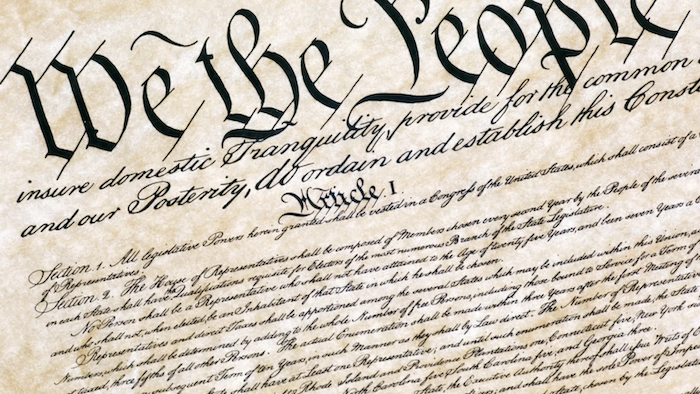 We the People
insure domestic Tranquility, provide for the common
and our Posterity, do ordain and establish this Const
Article I
Section 1. All legislative Powers herein granted shall be vested in a Congress of the United States, which shall consist of a
of Representatives.
Section 2. The House of Representatives shall be composed of Members chosen every second Year by the People of the several
in each State shall have the Qualifications requisite for Electors of the most numerous Branch of the State Legislature.
No Person shall be a Representative who shall not have attained to the Age of twenty five Years, and been seven Years a
and who shall not, when elected, be an Inhabitant of that State in which he shall be chosen.
Representatives and direct Taxes shall be apportioned among the several States which may be included within this Union,
Numbers, which shall be determined by adding to the whole Number of free Persons, including those bound to Service for a Term
three fifths of all other Persons. The actual Enumeration shall be made within three Years after the first Meeting of
subsequent Term of ten Years, in such Manner as they shall by Law direct. The Number of Represent
shall have at Least one Representative; and until such enumeration shall be made, the State
Rhode Island and Providence Plantations one, Connecticut five, New York
North Carolina five, South Carolina five, and Georgia three.
State, the Executive Authority thereof shall issue Writs of
and shall have the sole Power of Imp
State, chosen by the Legislat